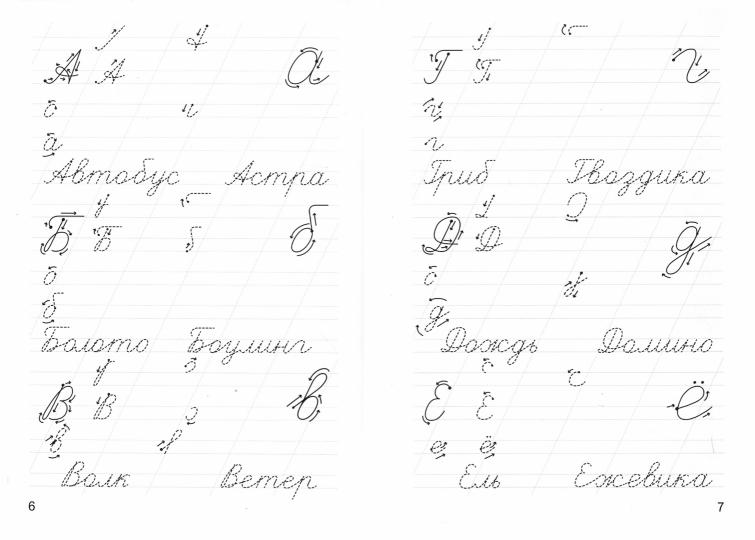 А А а
а
Автобус Астра
Б Б б б
б
Болото Боулинг
В В в
в
Волк Ветер
6
Г Г г
г
г
Гриб Гвоздика
Д Д д
д
Дождь Домино
Е Е ё
е ё
Ель Ежевика
7